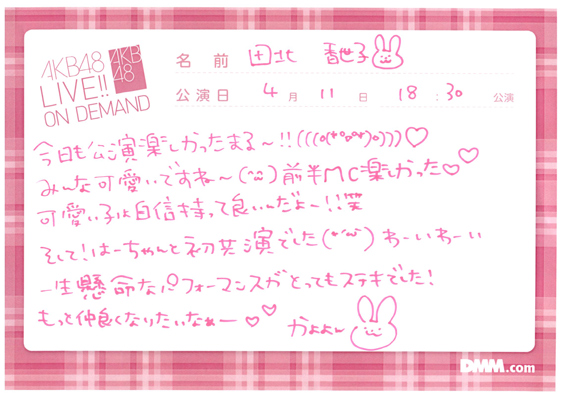 AKB48
LIVE!!
ON DEMAND
AKB
48
名前 田北 香世子
公演日 4月 11日 18:30 公演
今日も公演楽しかったまる〜!!(((o(*゚o゚*)o)))♡
みんな可愛いですね〜(^ω^)前半MC楽しかった♡♡
可愛い子は自信持って良いんだよー!!笑
そして!はーちゃんと初共演でした(*´ω`*)わーいわーい
一生懸命なパフォーマンスがとってもステキでした!
もっと仲良くなりたいなぁー♡♡
かよよん
DMM.com